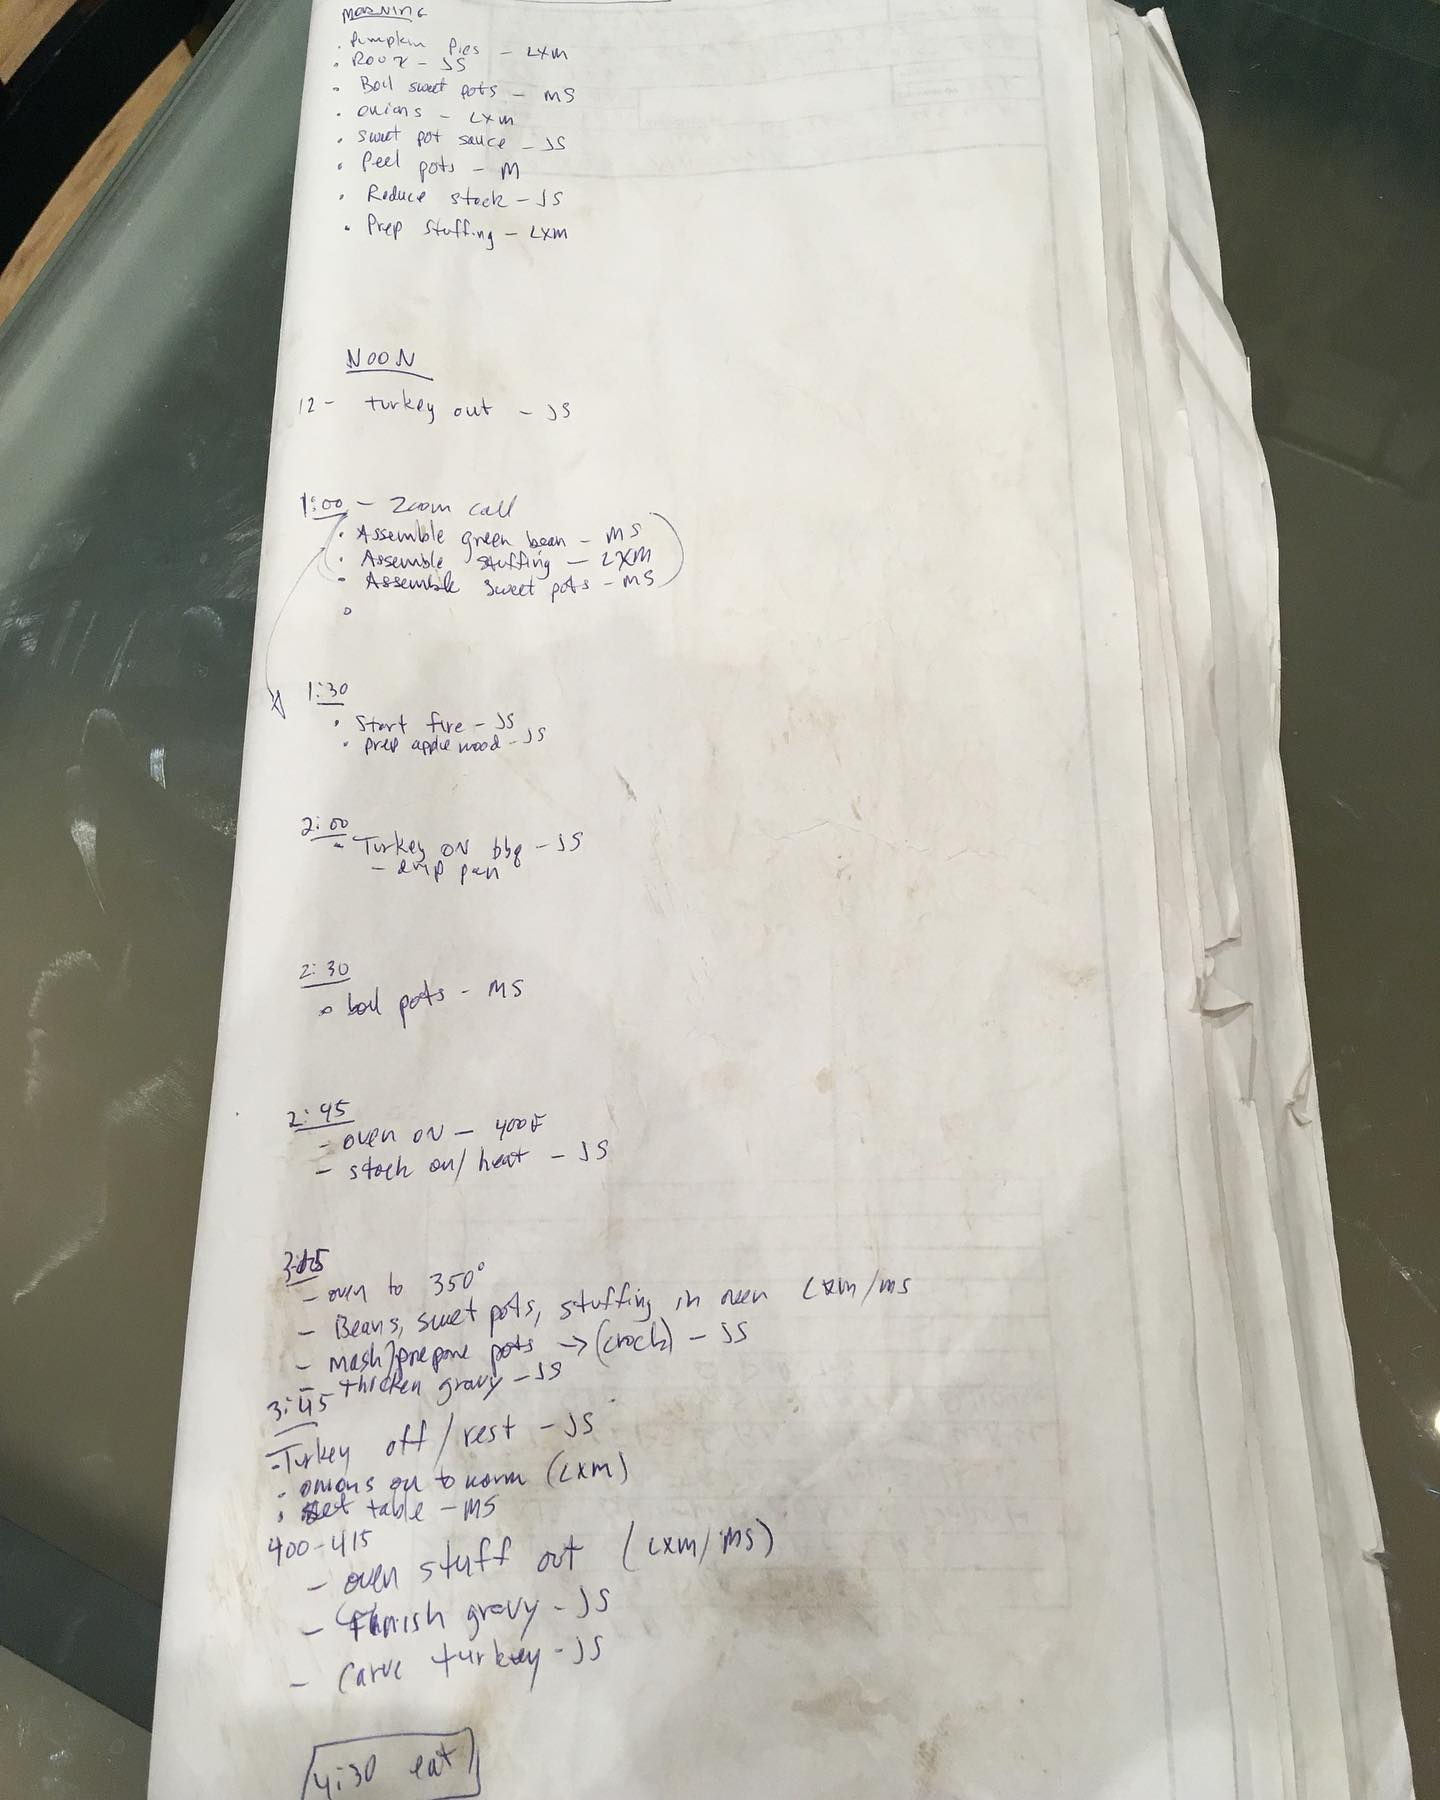 MORNING
· Pumpkin Pies - LXM
· Roux - JS
· Boil sweet pots - MS
· onions - LXM
· sweet pot sauce - JS
· Peel pots - M
· Reduce stock - JS
· Prep stuffing - LXM
NOON
12 - turkey out - JS
1:00 - Zoom call
· Assemble green bean - MS
· Assemble stuffing - LXM
· Assemble sweet pots - MS
1:30
· Start fire - JS
· prep apple wood - JS
2:00
- Turkey ON bbq - JS
- drip pan
2:30
· boil pots - MS
2:45
- oven ON - 400F
- stock on/heat - JS
- oven to 350°
- Beans, sweet pots, stuffing in oven LXM/MS
- mash/prepare pots → (crock) - JS
- thicken gravy - JS
3:45
- Turkey off/rest - JS
· onions on to warm (LXM)
· set table - MS
400-415
- oven stuff out (LXM/MS)
- finish gravy - JS
- Carve turkey - JS
4:30 eat